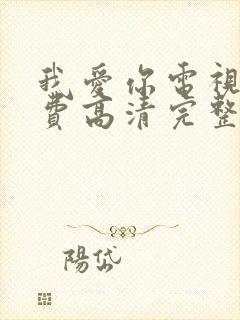 我愛你電視
費高清完整
陽岱